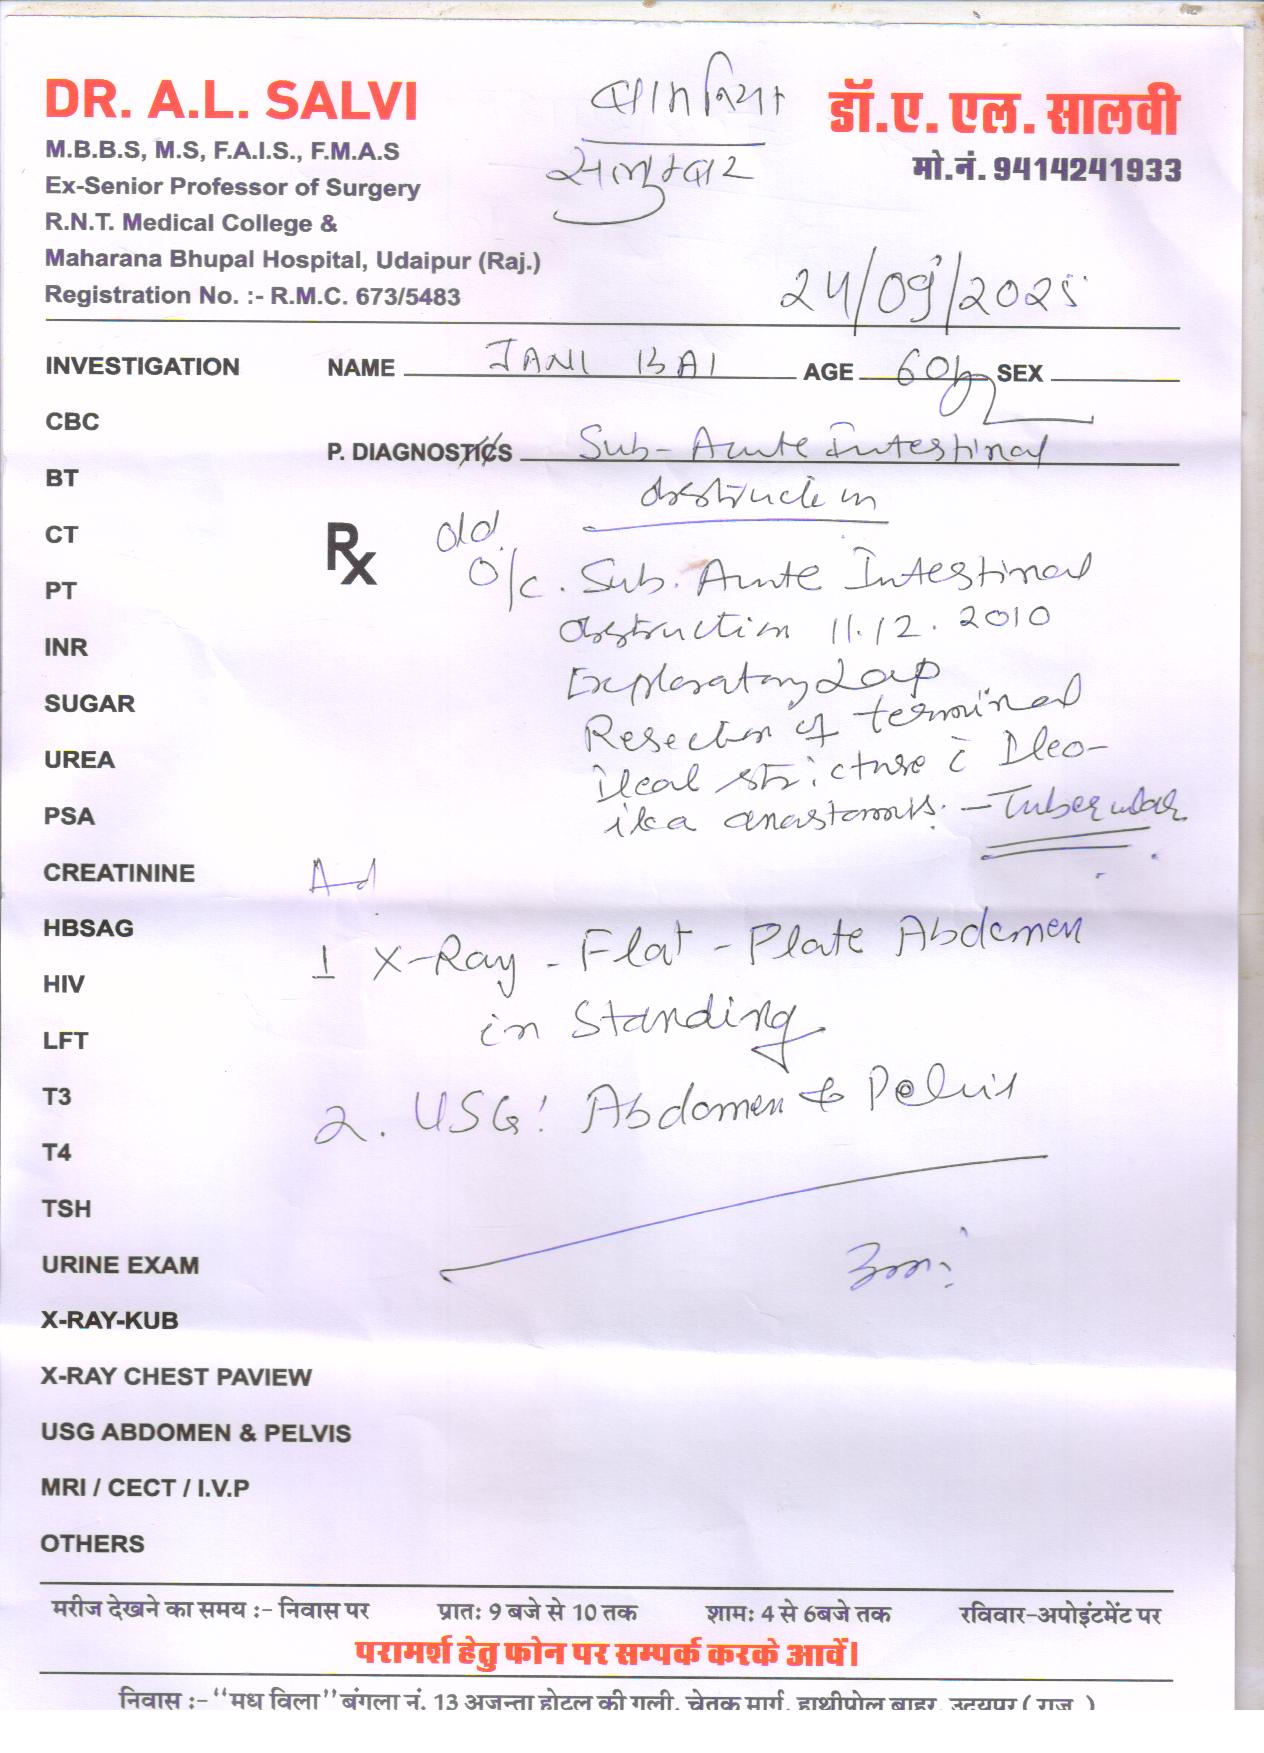 DR. A.L. SALVI
M.B.B.S, M.S, F.A.I.S., F.M.A.S
Ex-Senior Professor of Surgery
R.N.T. Medical College &
Maharana Bhupal Hospital, Udaipur (Raj.)
Registration No. :- R.M.C. 673/5483
डॉ.ए. एल. सालवी
मो.नं. 9414241933
24/09/2025
NAME JANI BAI AGE 60 SEX
P. DIAGNOSTICS Sub-Acute Intestinal
obstruction
Rx old
O/c. Sub. Acute Intestinal
obstruction 11.12.2010
Exploratory Lap
Resection of terminal
ileal stricture c̄ Ileo-
anastomosis. - Tubercular
Ad
1 X-Ray - Flat - Plate Abdomen
in Standing
2. USG! Abdomen & Pelvis
INVESTIGATION
CBC
BT
CT
PT
INR
SUGAR
UREA
PSA
CREATININE
HBSAG
HIV
LFT
T3
T4
TSH
URINE EXAM
X-RAY-KUB
X-RAY CHEST PAVIEW
USG ABDOMEN & PELVIS
MRI / CECT / I.V.P
OTHERS
मरीज देखने का समय :- निवास पर प्रातः 9 बजे से 10 तक शामः 4 से 6बजे तक रविवार-अपोइंटमेंट पर
परामर्श हेतु फोन पर सम्पर्क करके आवें।
निवास :- "मध विला" बंगला नं. 13 अजन्ता होटल की गली, चेतक मार्ग, हाथीपोल बाहर, उदयपुर ( राज. )